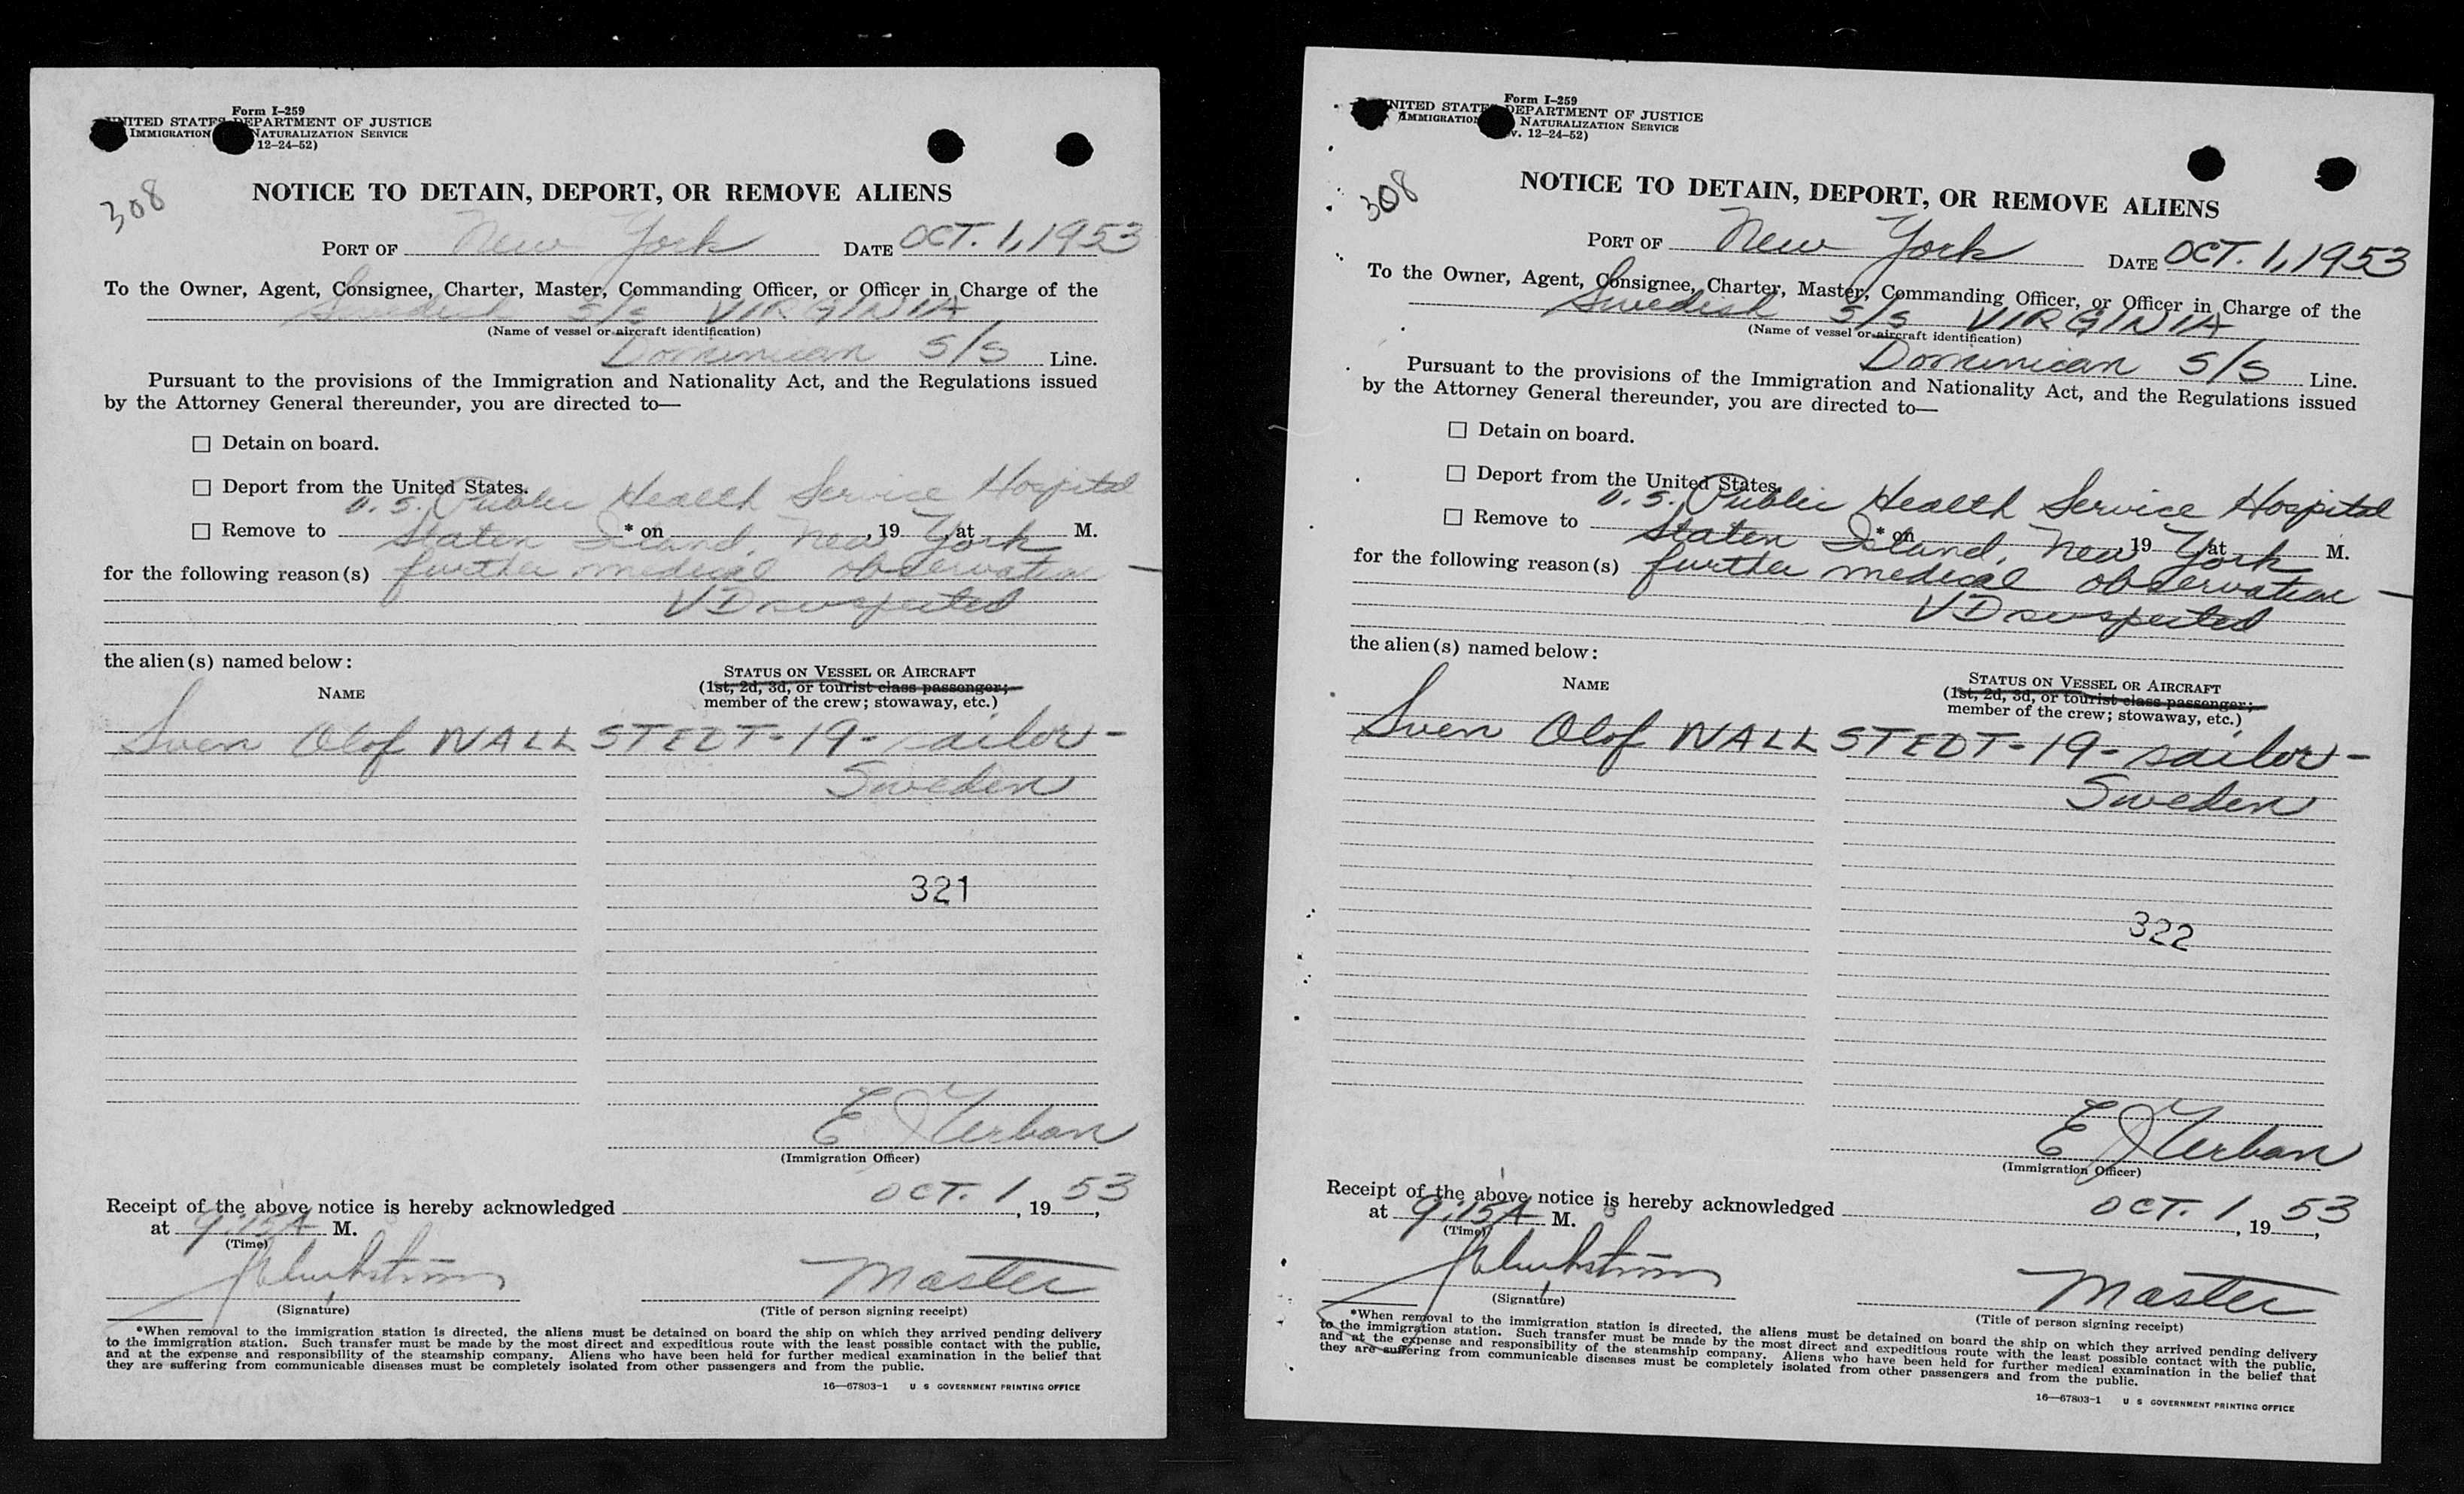 Form I-259
UNITED STATES DEPARTMENT OF JUSTICE
IMMIGRATION NATURALIZATION SERVICE
12-24-52)
308
NOTICE TO DETAIN, DEPORT, OR REMOVE ALIENS
PORT OF New York DATE OCT. 1, 1953
To the Owner, Agent, Consignee, Charter, Master, Commanding Officer, or Officer in Charge of the
Swedish S/S VIRGINIA
(Name of vessel or aircraft identification)
Dominican S/S Line.
Pursuant to the provisions of the Immigration and Nationality Act, and the Regulations issued
by the Attorney General thereunder, you are directed to—
☐ Detain on board.
☐ Deport from the United States.
U.S. Public Health Service Hospital
☐ Remove to * on , 19 at M.
Staten Island, New York
for the following reason(s) further medical observation —
VD suspected
the alien(s) named below:
NAME
STATUS ON VESSEL OR AIRCRAFT
(1st, 2d, 3d, or tourist class passenger;
member of the crew; stowaway, etc.)
Sven Olof WALLSTEDT - 19 - sailor -
Sweden
321
E J Urban
(Immigration Officer)
Receipt of the above notice is hereby acknowledged OCT. 1, 1953,
at 9:15 A M.
(Time)
Master
(Signature)
(Title of person signing receipt)
*When removal to the immigration station is directed, the aliens must be detained on board the ship on which they arrived pending delivery
to the immigration station. Such transfer must be made by the most direct and expeditious route with the least possible contact with the public,
and at the expense and responsibility of the steamship company. Aliens who have been held for further medical examination in the belief that
they are suffering from communicable diseases must be completely isolated from other passengers and from the public.
16—67803-1 U S GOVERNMENT PRINTING OFFICE
Form I-259
UNITED STATES DEPARTMENT OF JUSTICE
IMMIGRATION NATURALIZATION SERVICE
v. 12-24-52)
308
NOTICE TO DETAIN, DEPORT, OR REMOVE ALIENS
PORT OF New York DATE OCT. 1, 1953
To the Owner, Agent, Consignee, Charter, Master, Commanding Officer, or Officer in Charge of the
Swedish S/S VIRGINIA
(Name of vessel or aircraft identification)
Dominican S/S Line.
Pursuant to the provisions of the Immigration and Nationality Act, and the Regulations issued
by the Attorney General thereunder, you are directed to—
☐ Detain on board.
☐ Deport from the United States.
U.S. Public Health Service Hospital
☐ Remove to * on 19 at M.
Staten Island, New York
for the following reason(s) further medical observation —
VD suspected
the alien(s) named below:
NAME
STATUS ON VESSEL OR AIRCRAFT
(1st, 2d, 3d, or tourist class passenger;
member of the crew; stowaway, etc.)
Sven Olof WALLSTEDT - 19 - sailor -
Sweden
322
E J Urban
(Immigration Officer)
Receipt of the above notice is hereby acknowledged OCT. 1, 1953,
at 9:15 A M.
(Time)
Master
(Signature)
(Title of person signing receipt)
*When removal to the immigration station is directed, the aliens must be detained on board the ship on which they arrived pending delivery
to the immigration station. Such transfer must be made by the most direct and expeditious route with the least possible contact with the public,
and at the expense and responsibility of the steamship company. Aliens who have been held for further medical examination in the belief that
they are suffering from communicable diseases must be completely isolated from other passengers and from the public.
16—67803-1 U S GOVERNMENT PRINTING OFFICE